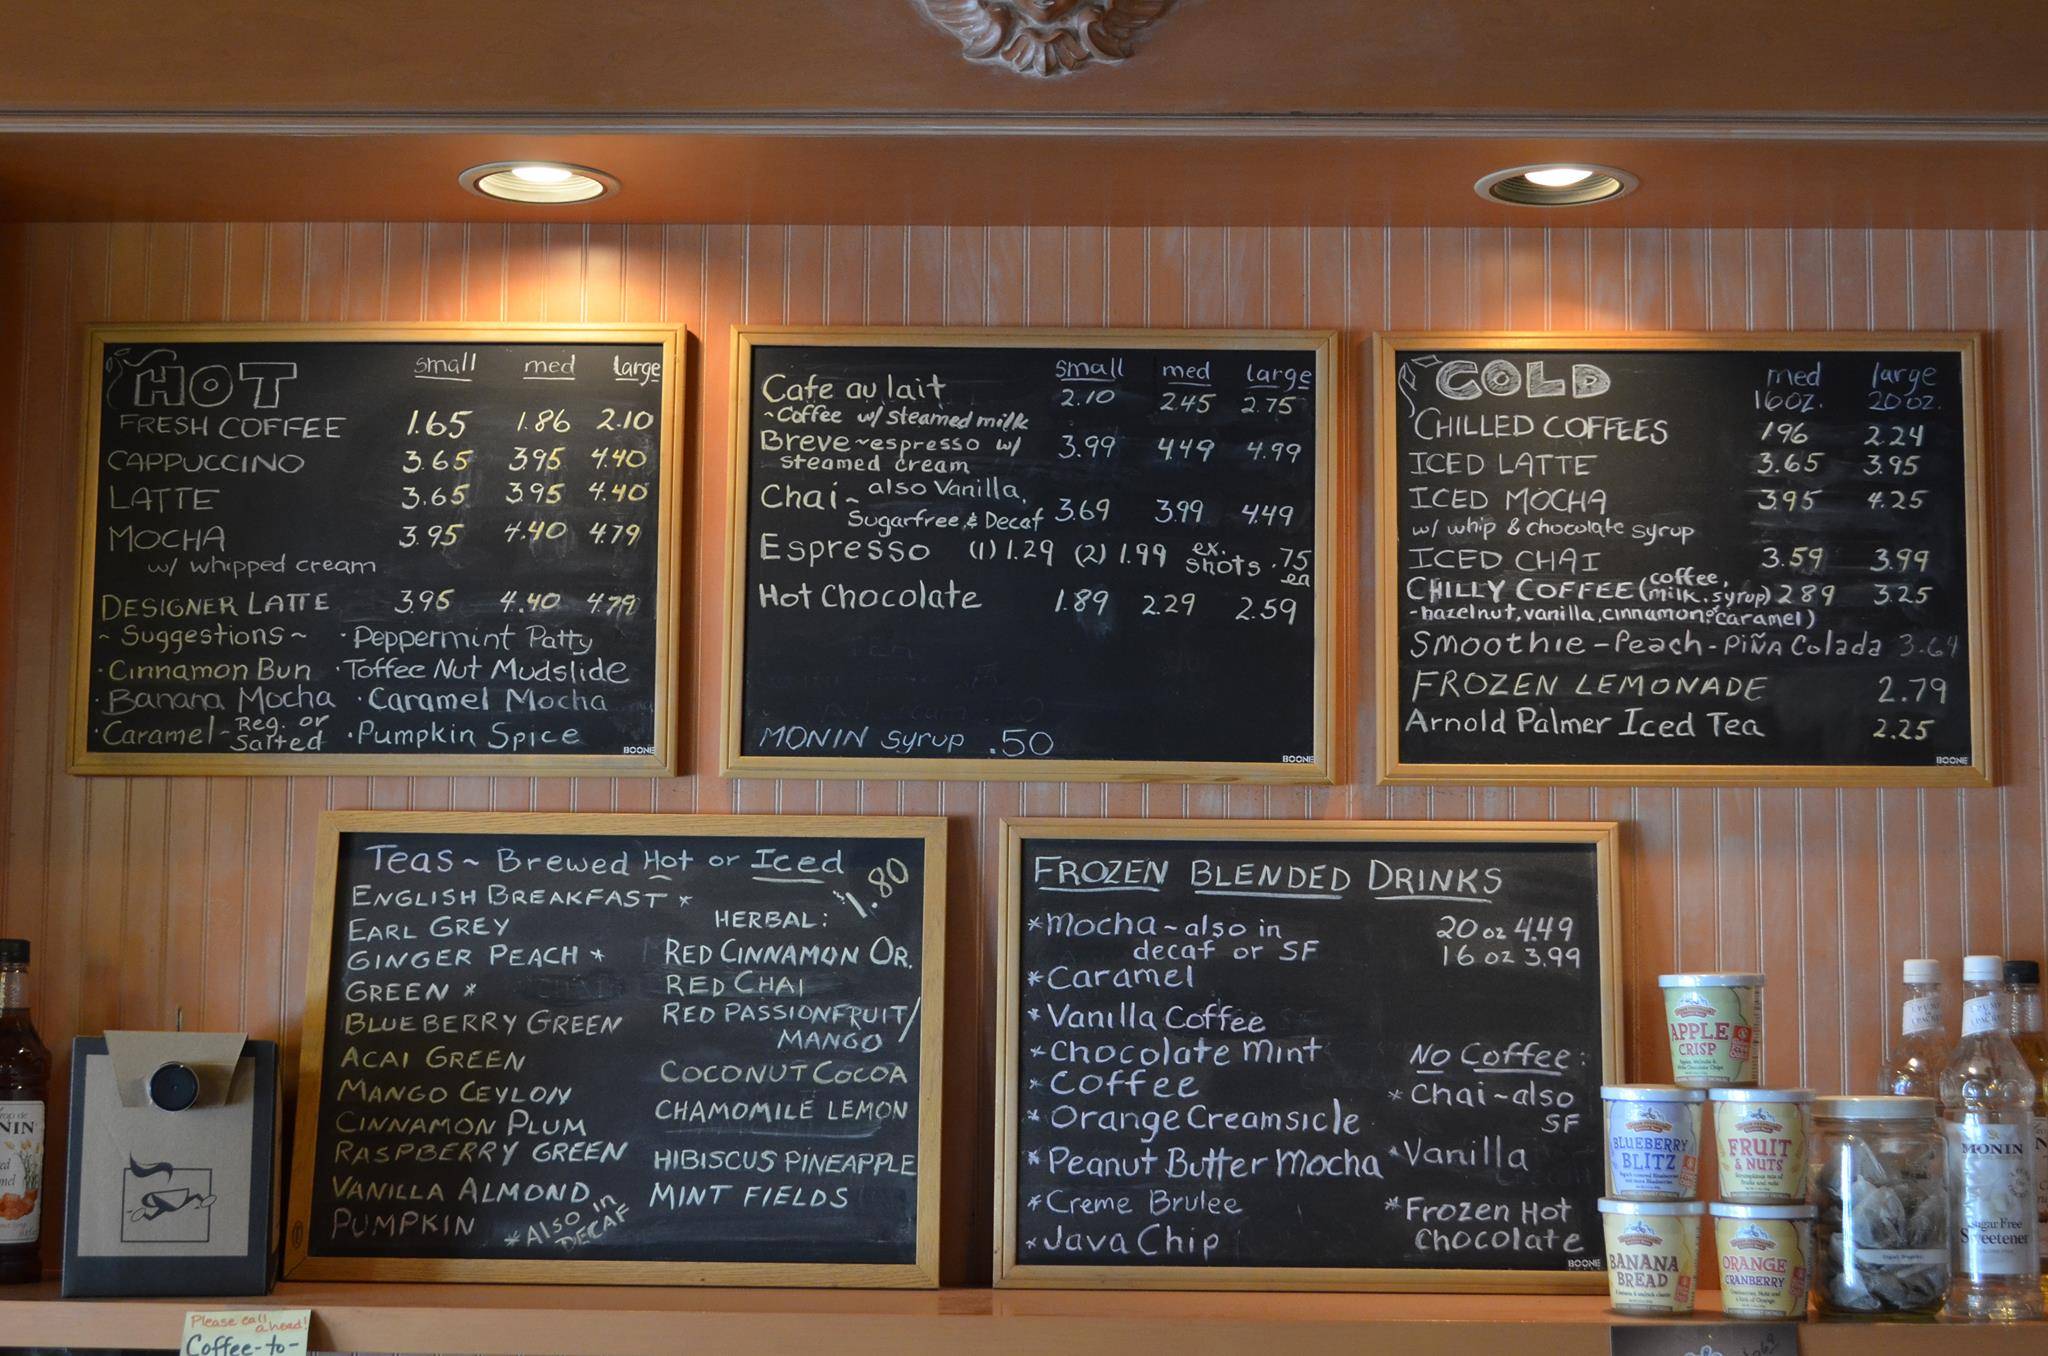 HOT small med large
FRESH COFFEE 1.65 1.86 2.10
CAPPUCCINO 3.65 3.95 4.40
LATTE 3.65 3.95 4.40
MOCHA 3.95 4.40 4.79
w/ whipped cream
DESIGNER LATTE 3.95 4.40 4.79
~ Suggestions ~ · Peppermint Patty
· Cinnamon Bun · Toffee Nut Mudslide
· Banana Mocha · Caramel Mocha
· Caramel - Reg. or Salted · Pumpkin Spice
BOONE
small med large
Cafe au lait 2.10 2.45 2.75
~ Coffee w/ steamed milk
Breve ~ espresso w/ 3.99 4.49 4.99
steamed cream
Chai ~ also Vanilla,
Sugarfree & Decaf 3.69 3.99 4.49
Espresso (1) 1.29 (2) 1.99 ex. shots .75 ea
Hot Chocolate 1.89 2.29 2.59
MONIN syrup .50
BOONE
COLD med large
16oz. 20oz.
CHILLED COFFEES 196 2.24
ICED LATTE 3.65 3.95
ICED MOCHA 3.95 4.25
w/ whip & chocolate syrup
ICED CHAI 3.59 3.99
CHILLY COFFEE (coffee, milk, syrup) 2.89 3.25
- hazelnut, vanilla, cinnamon & caramel)
Smoothie - Peach - Piña Colada 3.64
FROZEN LEMONADE 2.79
Arnold Palmer Iced Tea 2.25
BOONE
Teas ~ Brewed Hot or Iced 1.80
ENGLISH BREAKFAST *
EARL GREY
GINGER PEACH *
GREEN *
BLUEBERRY GREEN
ACAI GREEN
MANGO CEYLON
CINNAMON PLUM
RASPBERRY GREEN
VANILLA ALMOND
PUMPKIN
* Also in DECAF
HERBAL:
RED CINNAMON OR.
RED CHAI
RED PASSIONFRUIT/
MANGO
COCONUT COCOA
CHAMOMILE LEMON
HIBISCUS PINEAPPLE
MINT FIELDS
FROZEN BLENDED DRINKS
* Mocha ~ also in
decaf or SF
* Caramel
* Vanilla Coffee
* Chocolate Mint
* Coffee
* Orange Creamsicle
* Peanut Butter Mocha
* Creme Brulee
* Java Chip
20 oz 4.49
16 oz 3.99
No Coffee:
* Chai ~ also
SF
* Vanilla
* Frozen Hot
Chocolate
BOONE
APPLE
CRISP
BLUEBERRY
BLITZ
FRUIT
& NUTS
BANANA
BREAD
ORANGE
CRANBERRY
MONIN
Sugar Free
Sweetener
Please call
ahead!
Coffee-to-